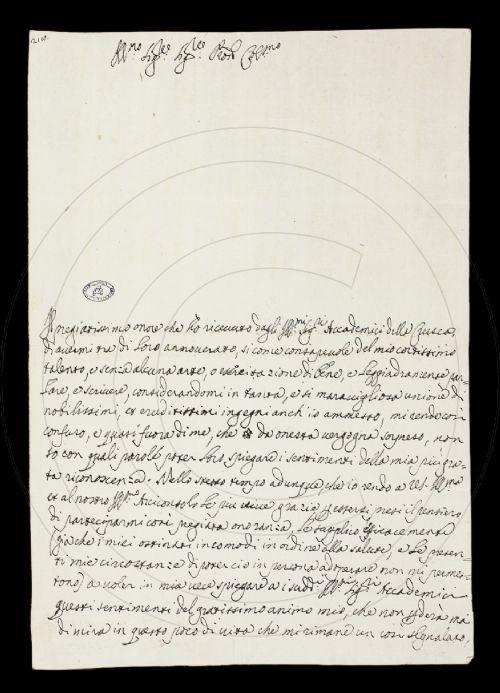 Ill.mo Sig.re Sig.re Pron Col.mo
Il pregiatissimo onore che ho ricevuto dagli Ill.mi Sig.ri Accademici della Crusca
di avermi tra di loro annoverato, siccome consapevole del mio cortissimo
talento, e senza alcuna arte, o esercitazione di bene, e leggiadramente par-
lare, e scrivere, considerandomi in tanta, e sì maravigliosa unione di
nobilissimi, et eruditissimi ingegni anch'io ammesso, mi rende così
confuso, e quasi fuora di me, che da onesta vergogna sorpreso, non
so con quali parole poter loro spiegare i sentimenti della mia più gra-
ta riconoscenza. Nello stesso tempo adunque, che io rendo a VS. Ill.ma
et al nostro Ill.mo Arciconsolo le più vive grazie per essersi presi il pensiero
di parteciparmi così pregiata onoranza, la supplico efficacemente
già che i miei ostinati incomodi in ordine alla salute, e le presen-
ti mie circostanze di poter ciò in persona adoprare non mi permet-
tono) a voler in mia vece spiegare a i sudd.i Ill.mi Sig.ri Accademici
questi sentimenti del gratissimo animo mio, che non perderà mai
di mira in questo poco di vita che mi rimane un così segnalato,